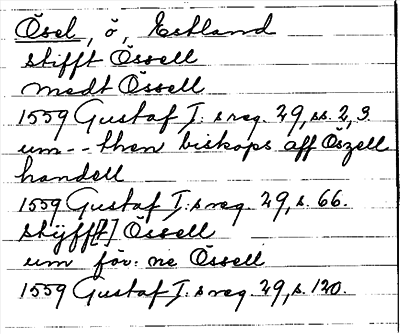 Ösel, ö, Estland
stifft Össell
medt Össell
1559 Gustaf I:s reg. 29, ss. 2, 3.
um - - then biskops aff Öszell
handell
1559 Gustaf I:s reg. 29, s. 66.
styfft[t] Össell
um för:ne Össell
1559 Gustaf I:s reg. 29, s. 120.